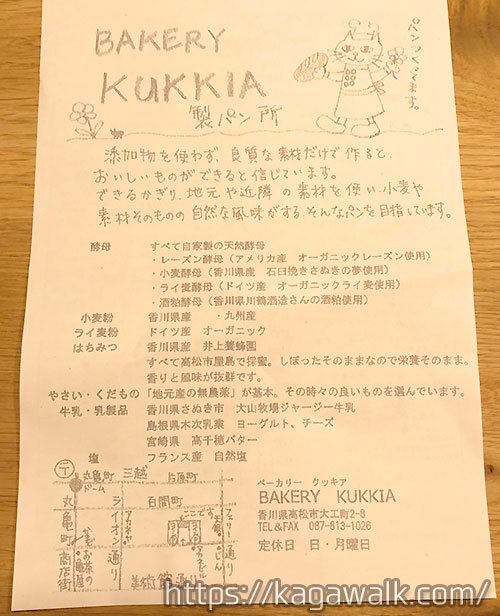 BAKERY
KUKKIA
製パン所
パンつくってます。
添加物を使わず、良質な素材だけで作ると、
おいしいものができると信じています。
できるかぎり、地元や近隣の素材を使い、小麦や
素材そのものの自然な風味がする、そんなパンを目指しています。
酵母 すべて自家製の天然酵母
・レーズン酵母（アメリカ産 オーガニックレーズン使用）
・小麦酵母（香川県産 石臼挽きさぬきの夢使用）
・ライ麦酵母（ドイツ産 オーガニックライ麦使用）
・酒粕酵母（香川県川鶴酒造さんの酒粕使用）
小麦粉 香川県産 ・九州産
ライ麦粉 ドイツ産 オーガニック
はちみつ 香川県産 井上養蜂園
すべて高松市屋島で採蜜。しぼったそのままなので栄養そのまま。
香りと風味が抜群です。
やさい・くだもの 「地元産の無農薬」が基本。その時々の良いものを選んでいます。
牛乳・乳製品 香川県さぬき市 大山牧場ジャージー牛乳
島根県木次乳業 ヨーグルト、チーズ
宮崎県 高千穂バター
塩 フランス産 自然塩
丸亀町
ドーム
三越
片原町
百間町
丸亀町商店街
お茶の
ライオン通り
ここです
フェリー通り
美術館通り
ベーカリー クッキア
BAKERY KUKKIA
香川県高松市大工町2-8
TEL&FAX 087-813-1026
定休日 日・月曜日
https://kagawalk.com/